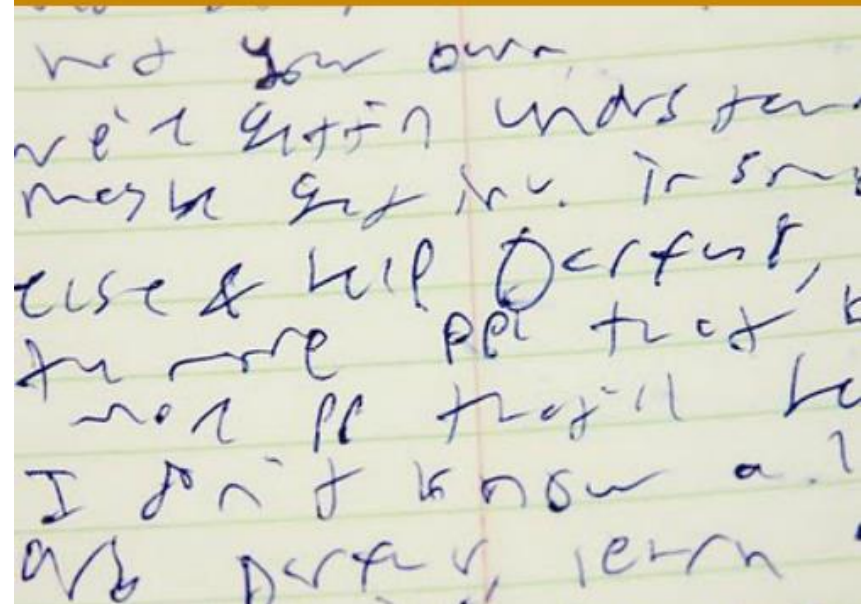 not your own
we'r gettin undrstan
maybe get inv. in sm
else & help Darfur,
the more ppl that k
more pp that'll he
I don't know al
Darfur, learn